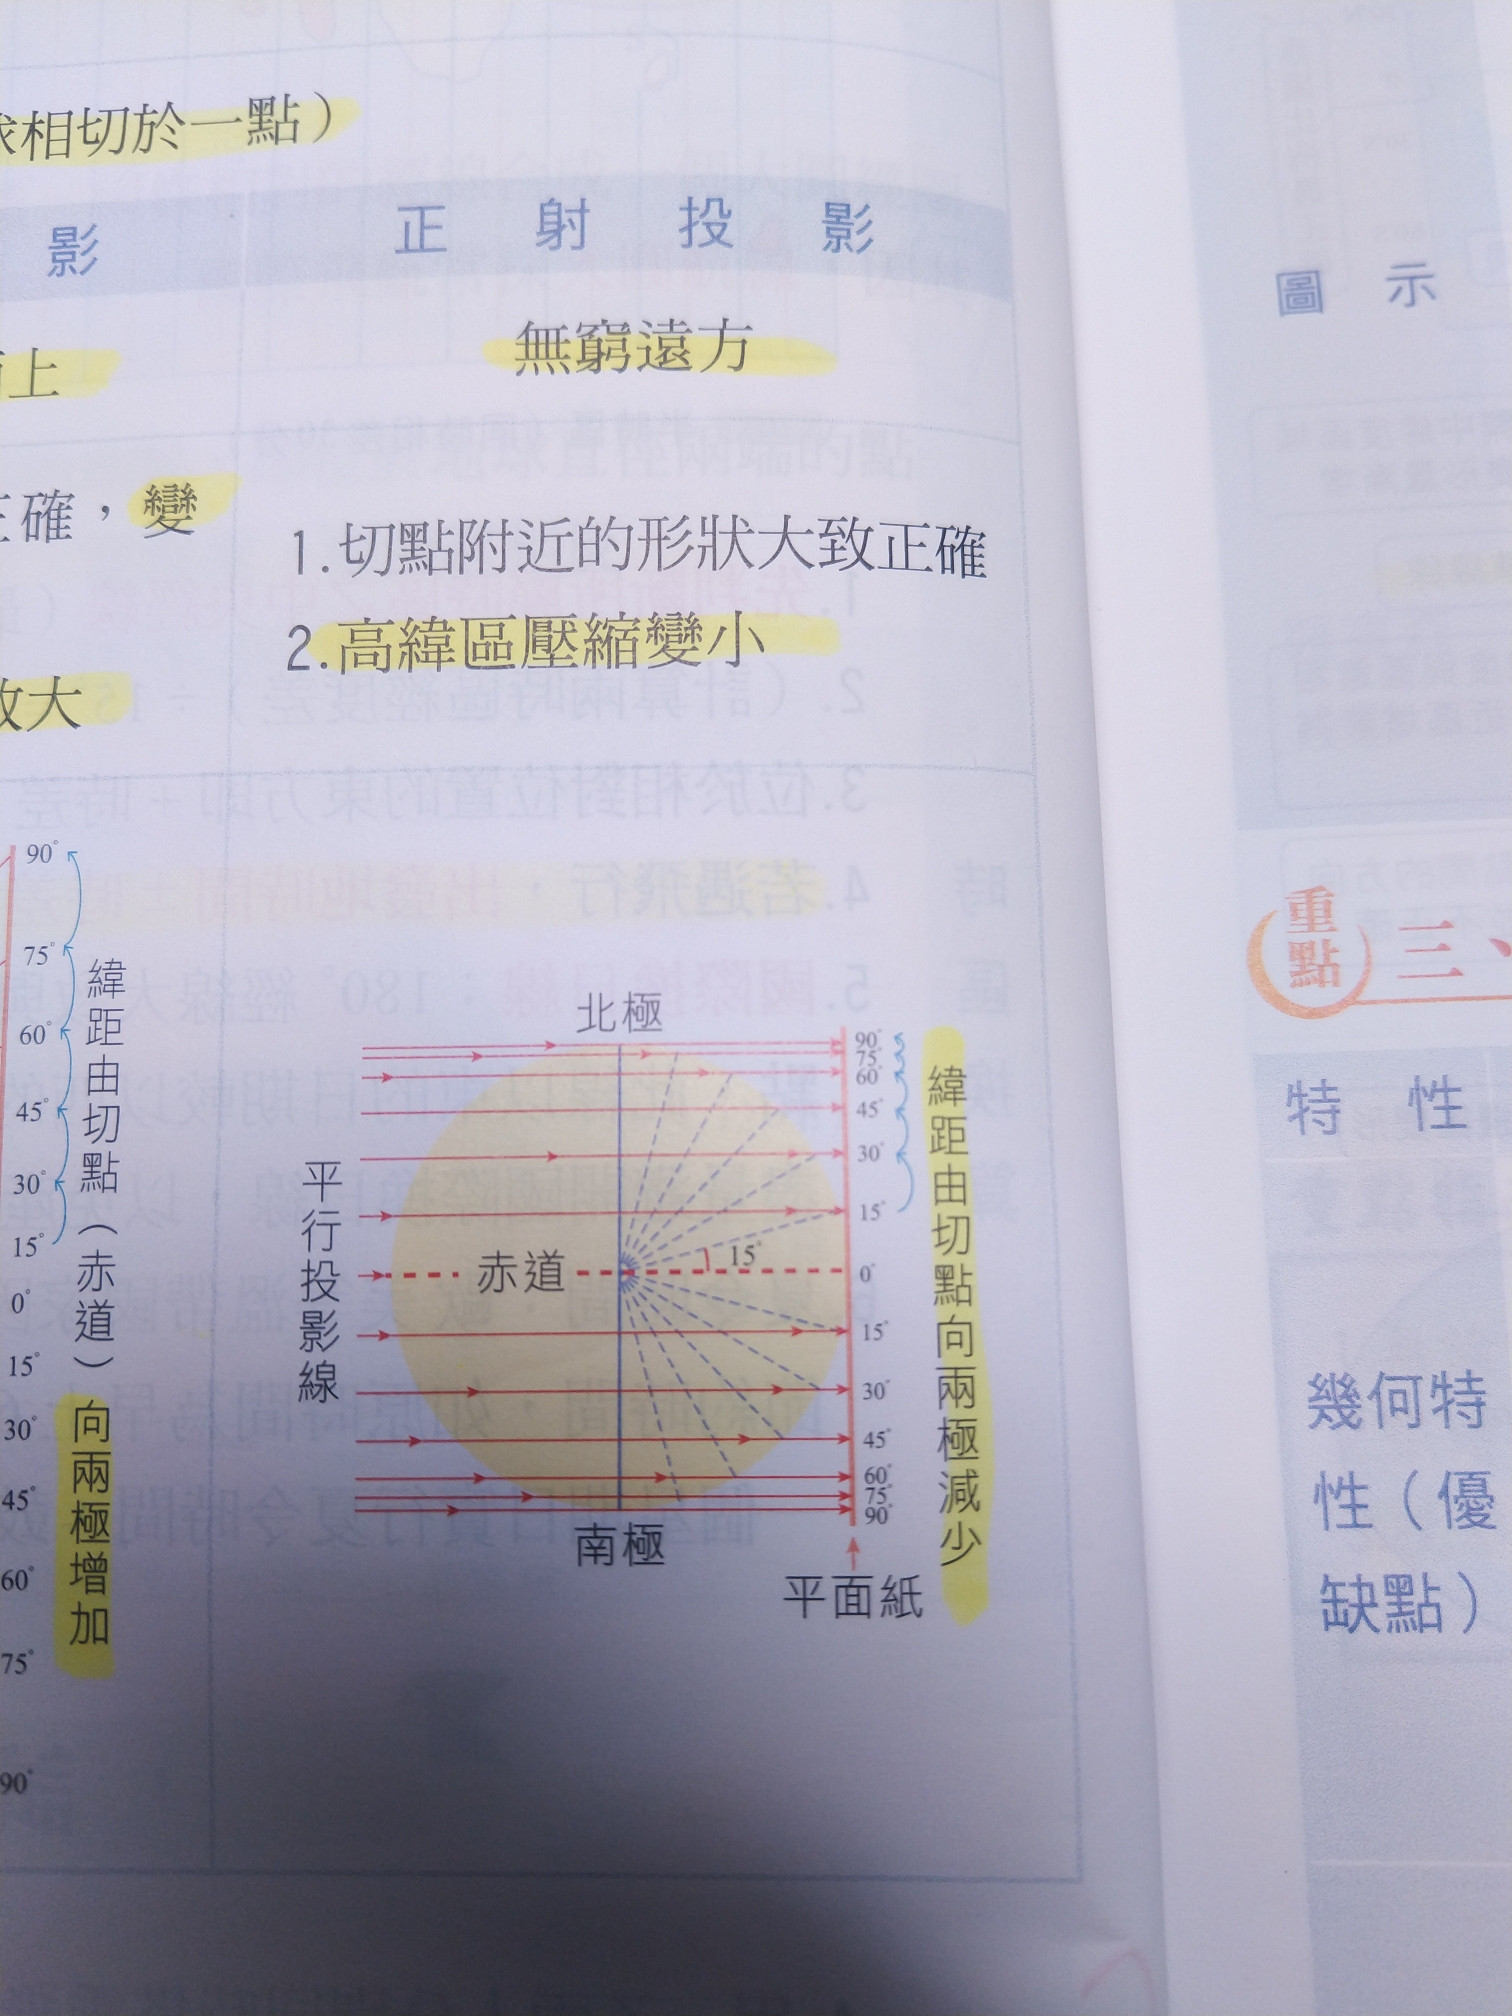 球相切於一點）
影
正射投影
上
無窮遠方
正確，變
1.切點附近的形狀大致正確
2.高緯區壓縮變小
放大
90°
75°
60°
45°
30°
15°
0°
15°
30°
45°
60°
75°
90°
緯距由切點（赤道）向兩極增加
北極
平行投影線
赤道
15°
南極
90°
75°
60°
45°
30°
15°
0°
15°
30°
45°
60°
75°
90°
平面紙
緯距由切點向兩極減少
圖示
重點
三、
特性
幾何特
性（優
缺點）